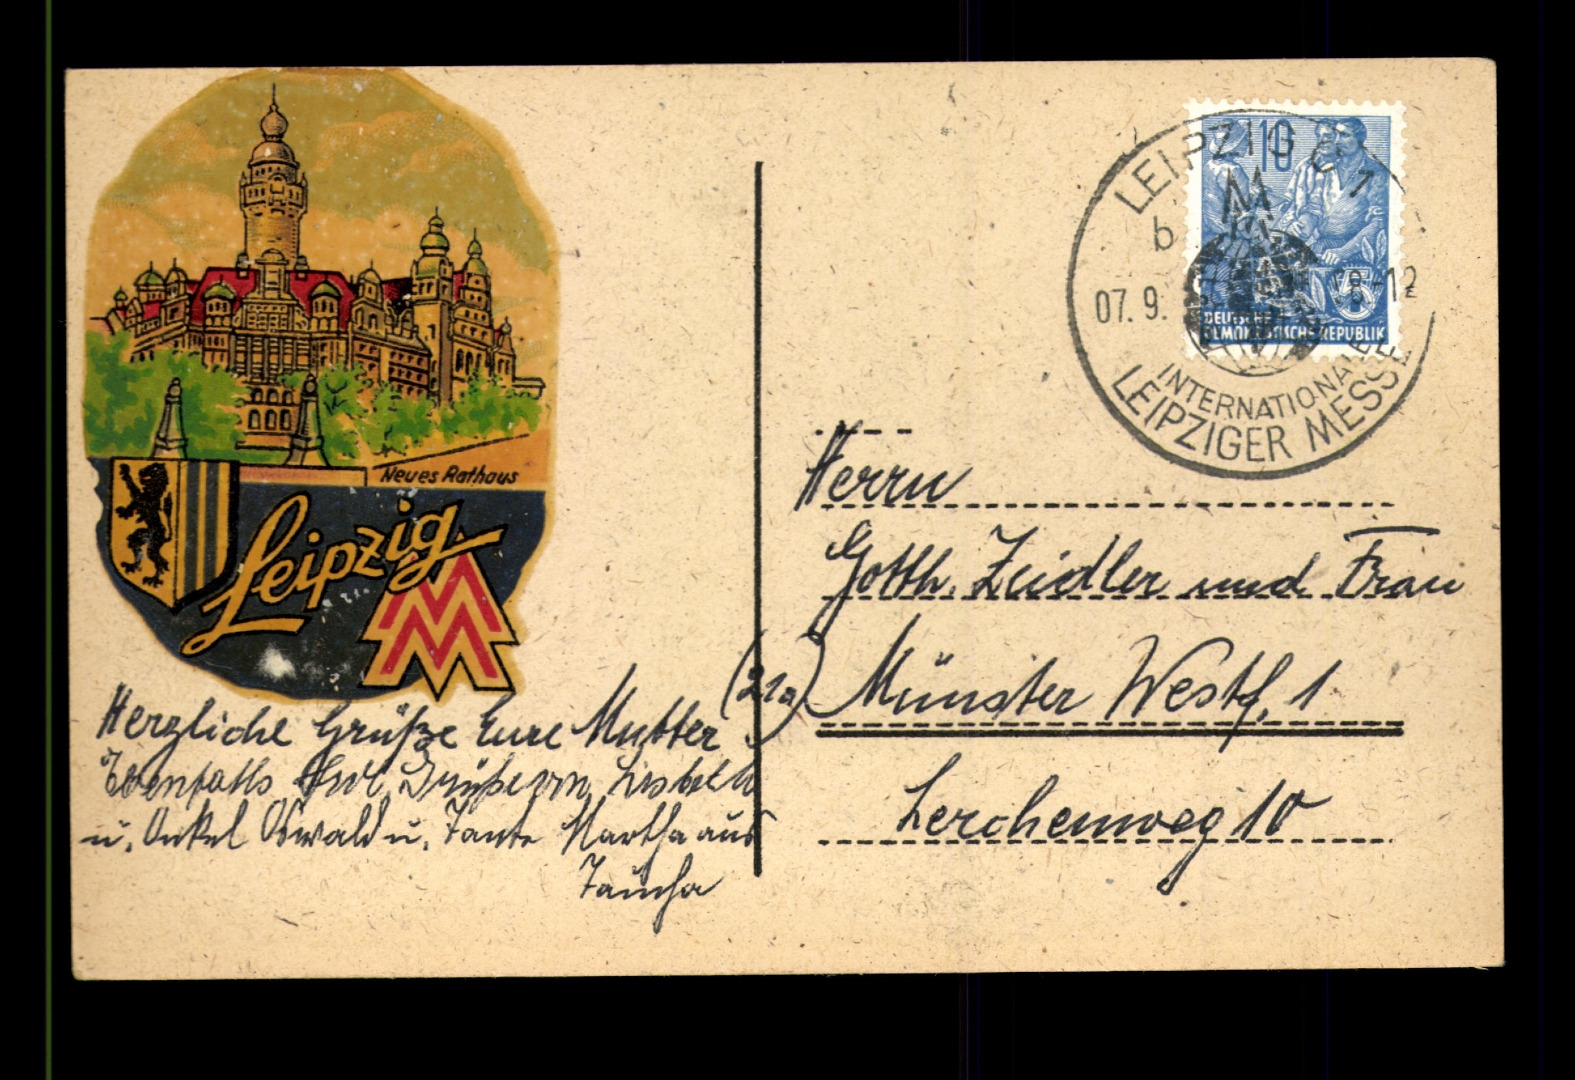 Neues Rathaus
Leipzig
MM
Herzliche Grüße Eure Mutter
Ebenfalls Grüße von Lisbeth
u. Onkel Oswald u. Tante Martha aus
Taucha
LEIPZIG C 1
b
07.9. -12
INTERNATIONALE
LEIPZIGER MESSE
10
5
DEUTSCHE
DEMOKRATISCHE REPUBLIK
Herrn
Gotth. Zeidler und Frau
(21a) Münster Westf. 1
Lerchenweg 10